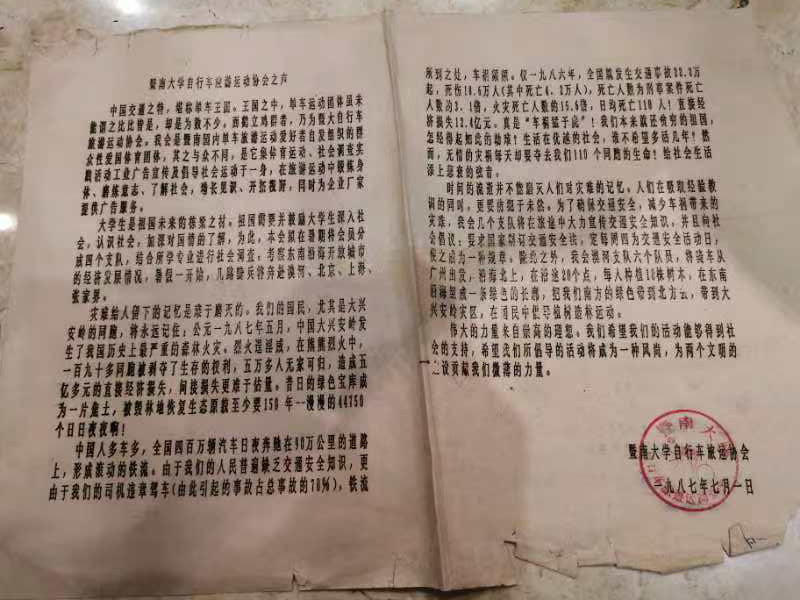 暨南大学自行车旅游运动协会之声
中国交通之特，堪称单车王国。王国之中，单车运动团体虽未
能谓之比比皆是，却是为数不少。而鹤立鸡群者，乃为暨大自行车
旅游运动协会。我会是暨南园内单车旅游运动爱好者自发组织的群
众性爱国体育团体，其之与众不同，是它集体育运动、社会调查实
践活动工业广告宣传及倡导社会运动于一身，在旅游运动中锻炼身
体、磨练意志、了解社会，增长见识、开拓视野，同时为企业厂家
提供广告服务。
大学生是祖国未来的栋梁之材。祖国需要并鼓励大学生深入社
会，认识社会，加深对国情的了解，为此，本会拟在暑期将会员分
成四个支队，结合所学专业进行社会调查。考察东南沿海开放城市
的经济发展情况，暑假一开始，几路队员将奔赴漠河、北京、上海、
张家界。
灾难给人留下的记忆是难于磨灭的。我们的国民，尤其是大兴
安岭的同胞，将永远记住：公元一九八七年五月，中国大兴安岭发
生了我国历史上最严重的森林火灾。烈火逞淫威，在熊熊烈火中，
一百九十多同胞被剥夺了生存的权利，五万多人无家可归，造成五
亿多元的直接经济损失，间接损失更难于估量。昔日的绿色宝库成
为一片焦土，被毁林地恢复生态原貌至少要150年--漫漫的44750
个日日夜夜啊！
中国人多车多，全国四百万辆汽车日夜奔驰在90万公里的道路
上，形成滚动的铁流。由于我们的人民普遍缺乏交通安全知识，更
由于我们的司机违章驾车(由此引起的事故占总事故的70%)，铁流
所到之处，车祸频频。仅一九八六年，全国就发生交通事故22.3万
起，死伤18.6万人(其中死亡4.2万人)，死亡人数为刑事案件死亡
人数的3.1倍，火灾死亡人数的15.6倍，日均死亡110人！直接经
济损失12.4亿元。真是“车祸猛于虎”！我们本来就还贫穷的祖国，
怎经得起如此的劫难！生活在优越的社会，谁不希望多活几年！然
而，无情的灾祸每天却要夺去我们110个同胞的生命！给社会生活
添上悲哀的弦音。
时间的流逝并不能磨灭人们对灾难的记忆。人们在吸取经验教
训的同时，更要防患于未然。为了确保交通安全，减少车祸带来的
灾殊，我会几个支队将在旅途中大力宣传交通安全知识，并且向社
会倡议：要求国家制订交通安全法，定每周四为交通安全活动日，
使之成为一种规章。除此之外，我会漠河支队六个队员，将骑车从
广州出发，沿海北上，在沿途20个点，每人种植10株树木，在东南
沿海里成一条绿色的长廊，把我们南方的绿色带到北方去，带到大
兴安岭灾区，在国民中倡导植树造林运动。
伟大的力量来自崇高的理想。我们希望我们的活动能够得到社
会的支持，希望我们所倡导的活动将成为一种风尚，为两个文明的
建设贡献我们微薄的力量。
暨南大学自行车旅运协会
一九八七年七月一日